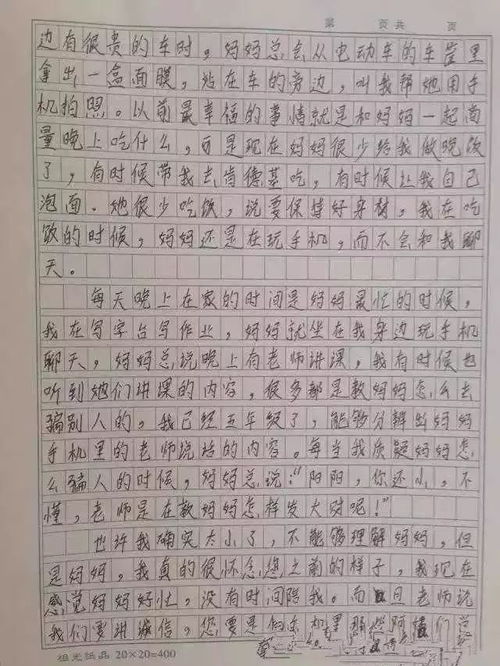 第 页共 页
边有很贵的车时，妈妈总会从电动车的车筐里
拿出一盒面膜，站在车的旁边，叫我帮她用手
机拍照。以前最幸福的事情就是和妈妈一起商
量晚上吃什么，可是现在妈妈很少给我做晚饭
了，有时候带我去肯德基吃，有时候让我自己
泡面。她很少吃饭，说要保持好身材，我在吃
饭的时候，妈妈还是在玩手机，而不会和我聊
天。
每天晚上在家的时间是妈妈最忙的时候，
我在写字台写作业，妈妈就坐在我身边玩手机
聊天，妈妈总说晚上有老师讲课，我有时候也
听到她们讲课的内容，很多都是教妈妈怎么去
骗别人的。我已经五年级了，能够分辨出妈妈
手机里的老师说话的内容。每当我质疑妈妈怎
么骗人的时候，妈妈总说：“阳阳，你还小，不
懂，老师是在教妈妈怎样发大财呢！”
也许我确实太小了，不能够理解妈妈，但
是妈妈，我真的很怀念您之前的样子，我现在
感觉妈妈好忙，没有时间陪我。而且老师说
我们要讲诚信。您要是
旭光纸品 20×20=400